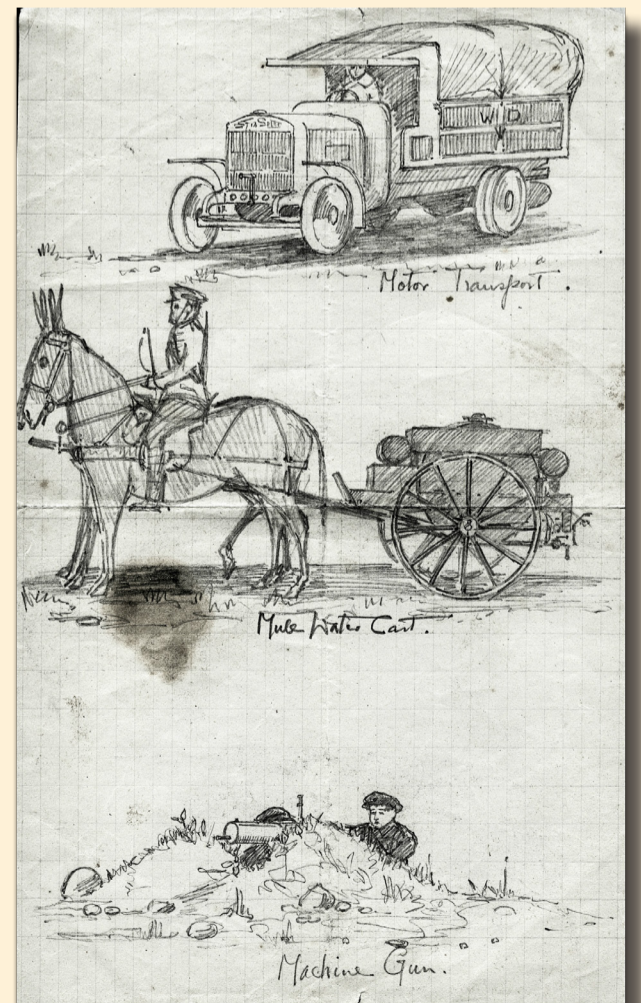 W D
Motor Transport.
Mule Water Cart.
Machine Gun.